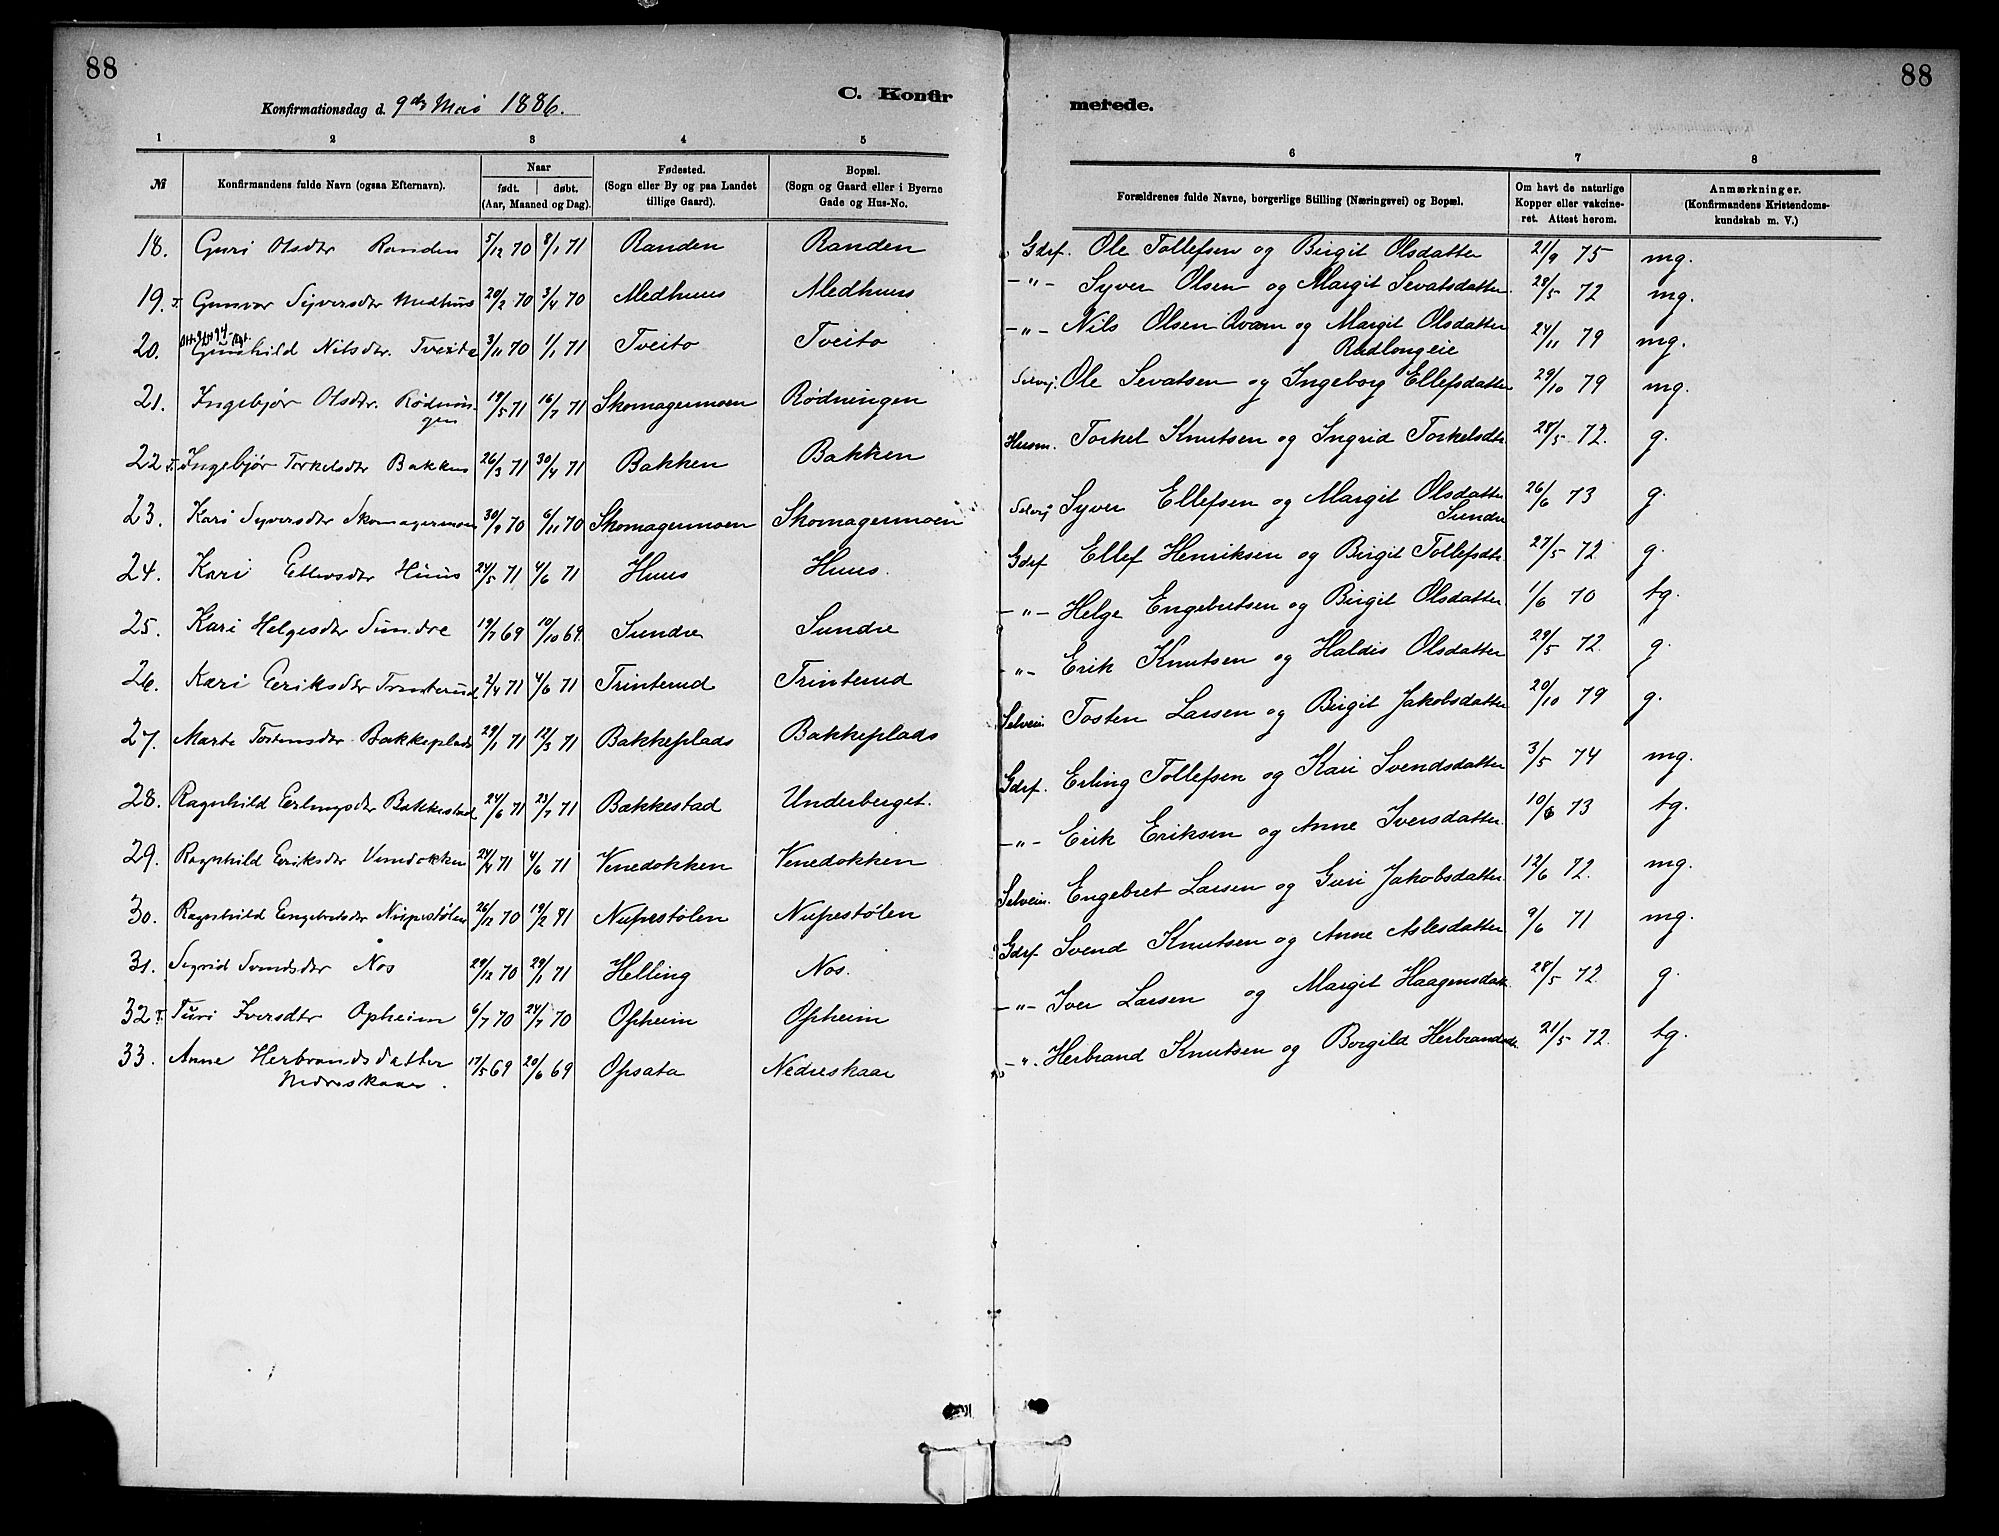 88
88
Konfirmationsdag d. 9de Mai 1886.
C. Konfir
merede.
1 2 3 4 5 6 7 8
№ Konfirmandens fulde Navn (ogsaa Efternavn). Naar født. døbt. (Aar, Maaned og Dag). Fødested. (Sogn eller By og paa Landet tillige Gaard). Bopæl. (Sogn og Gaard eller i Byerne Gade og Hus-No. Forældrenes fulde Navne, borgerlige Stilling (Næringsvei) og Bopæl. Om havt de naturlige Kopper eller vakcineret. Attest herom. Anmærkninger. (Konfirmandens Kristendomskundskab m. V.)
18. Guri Olsdtr Randen 5/12 70 8/1 71 Randen Randen Gdrf. Ole Tollefsen og Birgit Olsdatter 21/9 75 mg.
19. Gunvor Syversdtr Medhus 20/2 70 3/4 70 Medhuus Medhuus -"- Syver Olsen og Margit Sevatsdatter 28/5 72 mg.
20. Gunhild Nilsdtr. Tveito 3/11 70 1/1 71 Tveito Tveito -"- Nils Olsen Qvarn og Margit Olsdatter 24/11 79 mg.
Rudlongeie
21. Ingebjør Olsdtr. Rødnin- 19/5 71 16/7 71 Skomagermoen Rødningen Selvej. Ole Sevatsen og Ingeborg Ellefsdatter 29/10 79 mg.
gen
22. Ingebjør Torkelsdtr Bakken 26/3 71 30/4 71 Bakken Bakken Husm. Torkel Knutsen og Ingrid Torkelsdtr 28/5 72. g.
23. Kari Syversdtr Skomagermoen 30/9 70 6/11 70 Skomagermoen Skomagermoen Selvej Syver Ellefsen og Margit Olsdatter 26/6 73 g.
Sundre
24. Kari Ellevsdtr Huus 24/5 71 4/6 71 Huus Huus. Gdrf Ellef Henriksen og Birgit Tollefsdtr. 27/5 72 g.
25. Kari Helgesdtr Sundre 19/7 69 10/10 69 Sundre Sundre -"- Helge Engebretsen og Birgit Olsdatter 1/6 70 tg.
26. Kari Eeriksdtr Trinterud 2/4 71 4/6 71 Trinterud Trinterud -"- Erik Knutsen og Haldis Olsdatter 29/5 72. g.
27. Marte Tostensdtr Bakkeplads 29/1 71 12/3 71 Bakkeplads Bakkeplads Selveir. Tosten Larsen og Birgit Jakobsdatter 20/10 79 g.
28. Ragnhild Eerlingsdtr Bakkestad 24/6 71 23/7 71 Bakkestad Underberget. Gdrf. Erling Tollefsen og Kari Svendsdatter 3/5 74 mg.
29. Ragnhild Eeriksdtr Venedokken 24/4 71 4/6 71 Venedokken Venedokken -"- Erik Eriksen og Anne Iversdatter 10/6 73 tg.
30. Ragnhild Eengebretsdtr Nupestølen 26/12 70 19/2 81 Nupestølen Nupestølen Selveir. Engebret Larsen og Guri Jakobsdatter 12/6 72. mg.
31. Sigrid Svendsdtr Nos 29/12 70 29/1 71 Helling Nos. Gdrf Svend Knutsen og Anne Aslesdatter 9/6 71 mg.
32. Turi Iversdtr Opheim 6/7 70 24/7 70 Opheim Opheim -"- Iver Larsen og Margit Haagensdatr. 28/5 72. g.
33. Anne Herbrandsdatter 17/5 69 20/6 69 Opsata Nedreskaar -"- Herbrand Knutsen og Borgild Herbrandsdr. 21/5 72. tg.
Nedreskaar.